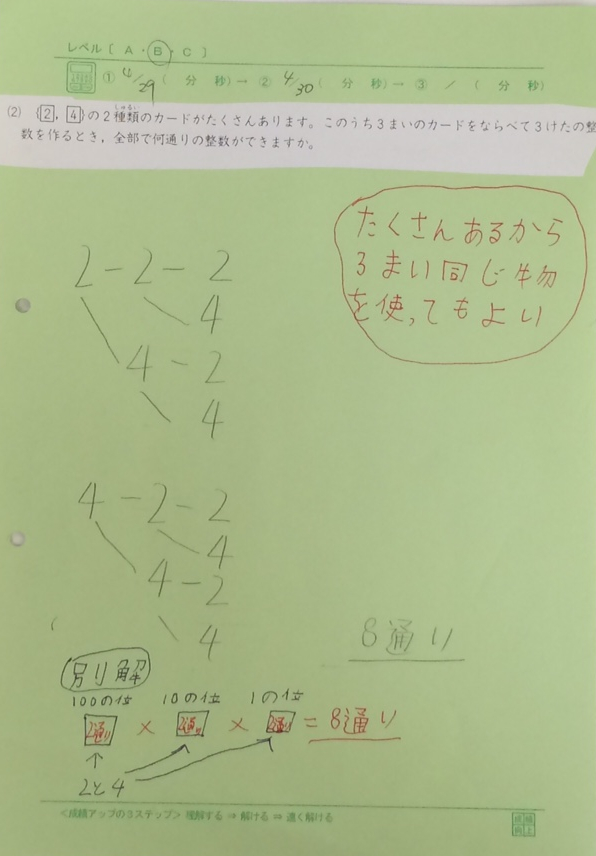 レベル〔 A ・ B ・ C 〕
① 4/29 ( 分 秒) → ② 4/30 ( 分 秒) → ③ / ( 分 秒)
(2) {2, 4}の2種類のカードがたくさんあります。このうち3まいのカードをならべて3けたの整
数を作るとき，全部で何通りの整数ができますか。
たくさんあるから
3まい同じ物
を使ってもよい
2-2-2
4
4-2
4
4-2-2
4
4-2
4
8通り
別解
100の位 10の位 1の位
2通り × 2通り × 2通り = 8通り
2と4
<成績アップの3ステップ> 理解する ⇒ 解ける ⇒ 速く解ける
成績
向上